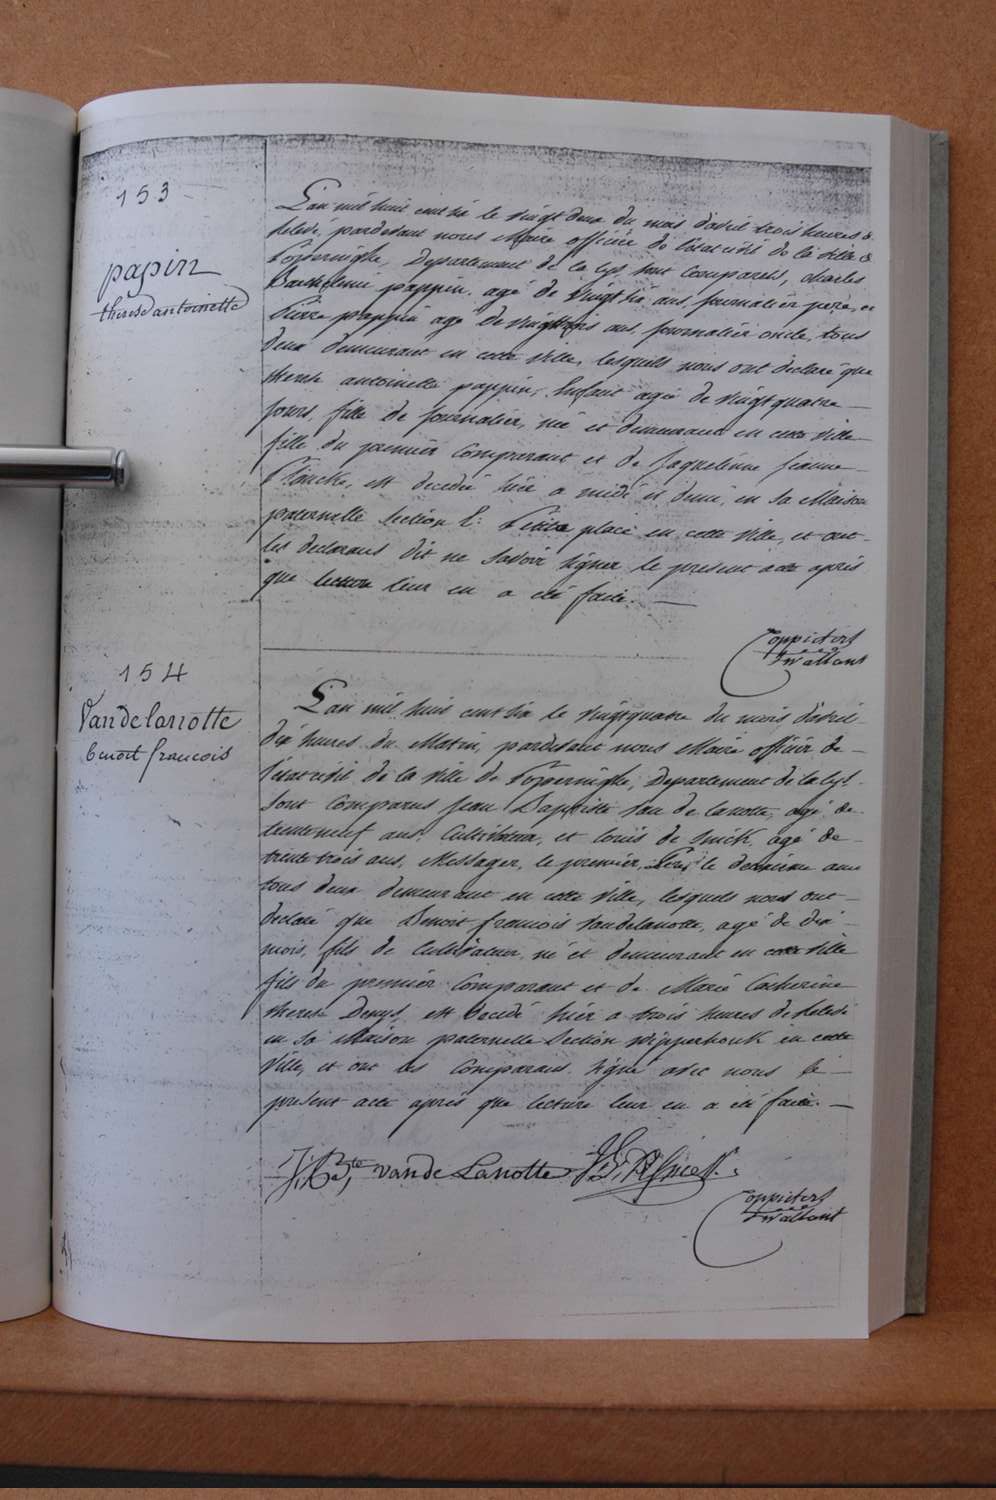 153
papin
thérèse antoinette
L'an mil huit cent six le vingt deux du mois d'avril trois heures de
relevé, pardevant nous Maire officier de l'état civil de la ville de
Poperinghe, Departement de la Lys sont Comparus, charles
Barthelemi pappin, agé de vingt six ans, journalier pere, et
Pierre pappin agé de vingt trois ans, journalier oncle, tous
deux demeurant en cette ville, lesquels nous ont declaré que
therese antoinette pappin, Enfant agé de vingt quatre
jours, fille de journalier, née et demeurant en cette ville
fille du premier Comparant et de Jaqueline jeanne
est decedée hier a midi et demi, en sa Maison
paternelle section E: petite place en cette ville, et ont
les declarans dit ne savoir signer le present acte après
que lecture leur en a été faite.
Coppieters
Wallant
154
Vandelanotte
benoit francois
L'an mil huit cent six le vingt quatre du mois d'avril
dix heures du Matin, pardevant nous Maire officier de
l'état civil de la ville de Poperinghe, Departement de la Lys.
sont Comparus Jean Baptiste Van de Lanotte, agé de
trente neuf ans, Cultivateur, et Louis de agé de
trente trois ans, Messager, le premier, le deuxième
tous deux demeurant en cette ville, lesquels nous ont
declaré que Benoit francois Vandelanotte, agé de dix
mois, fils de Cultivateur, né et demeurant en cette ville
fils du premier Comparant et de Marie Catherine
therese Denys, est decedé hier a trois heures de relevé
en sa Maison paternelle section Wipperhouk en cette
ville, et ont les Comparans signé avec nous le
present acte après que lecture leur en a été faite.
J: Bte van de Lanotte
Coppieters
Wallant